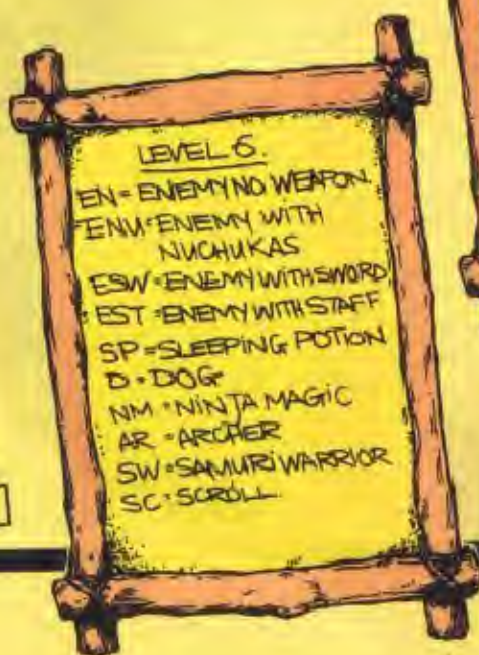 LEVEL 6.
EN = ENEMY NO WEAPON.
ENU = ENEMY WITH
NUCHUKAS
ESW = ENEMY WITH SWORD
EST = ENEMY WITH STAFF
SP = SLEEPING POTION
D = DOG
NM = NINJA MAGIC
AR = ARCHER
SW = SAMURI WARRIOR
SC = SCROLL.